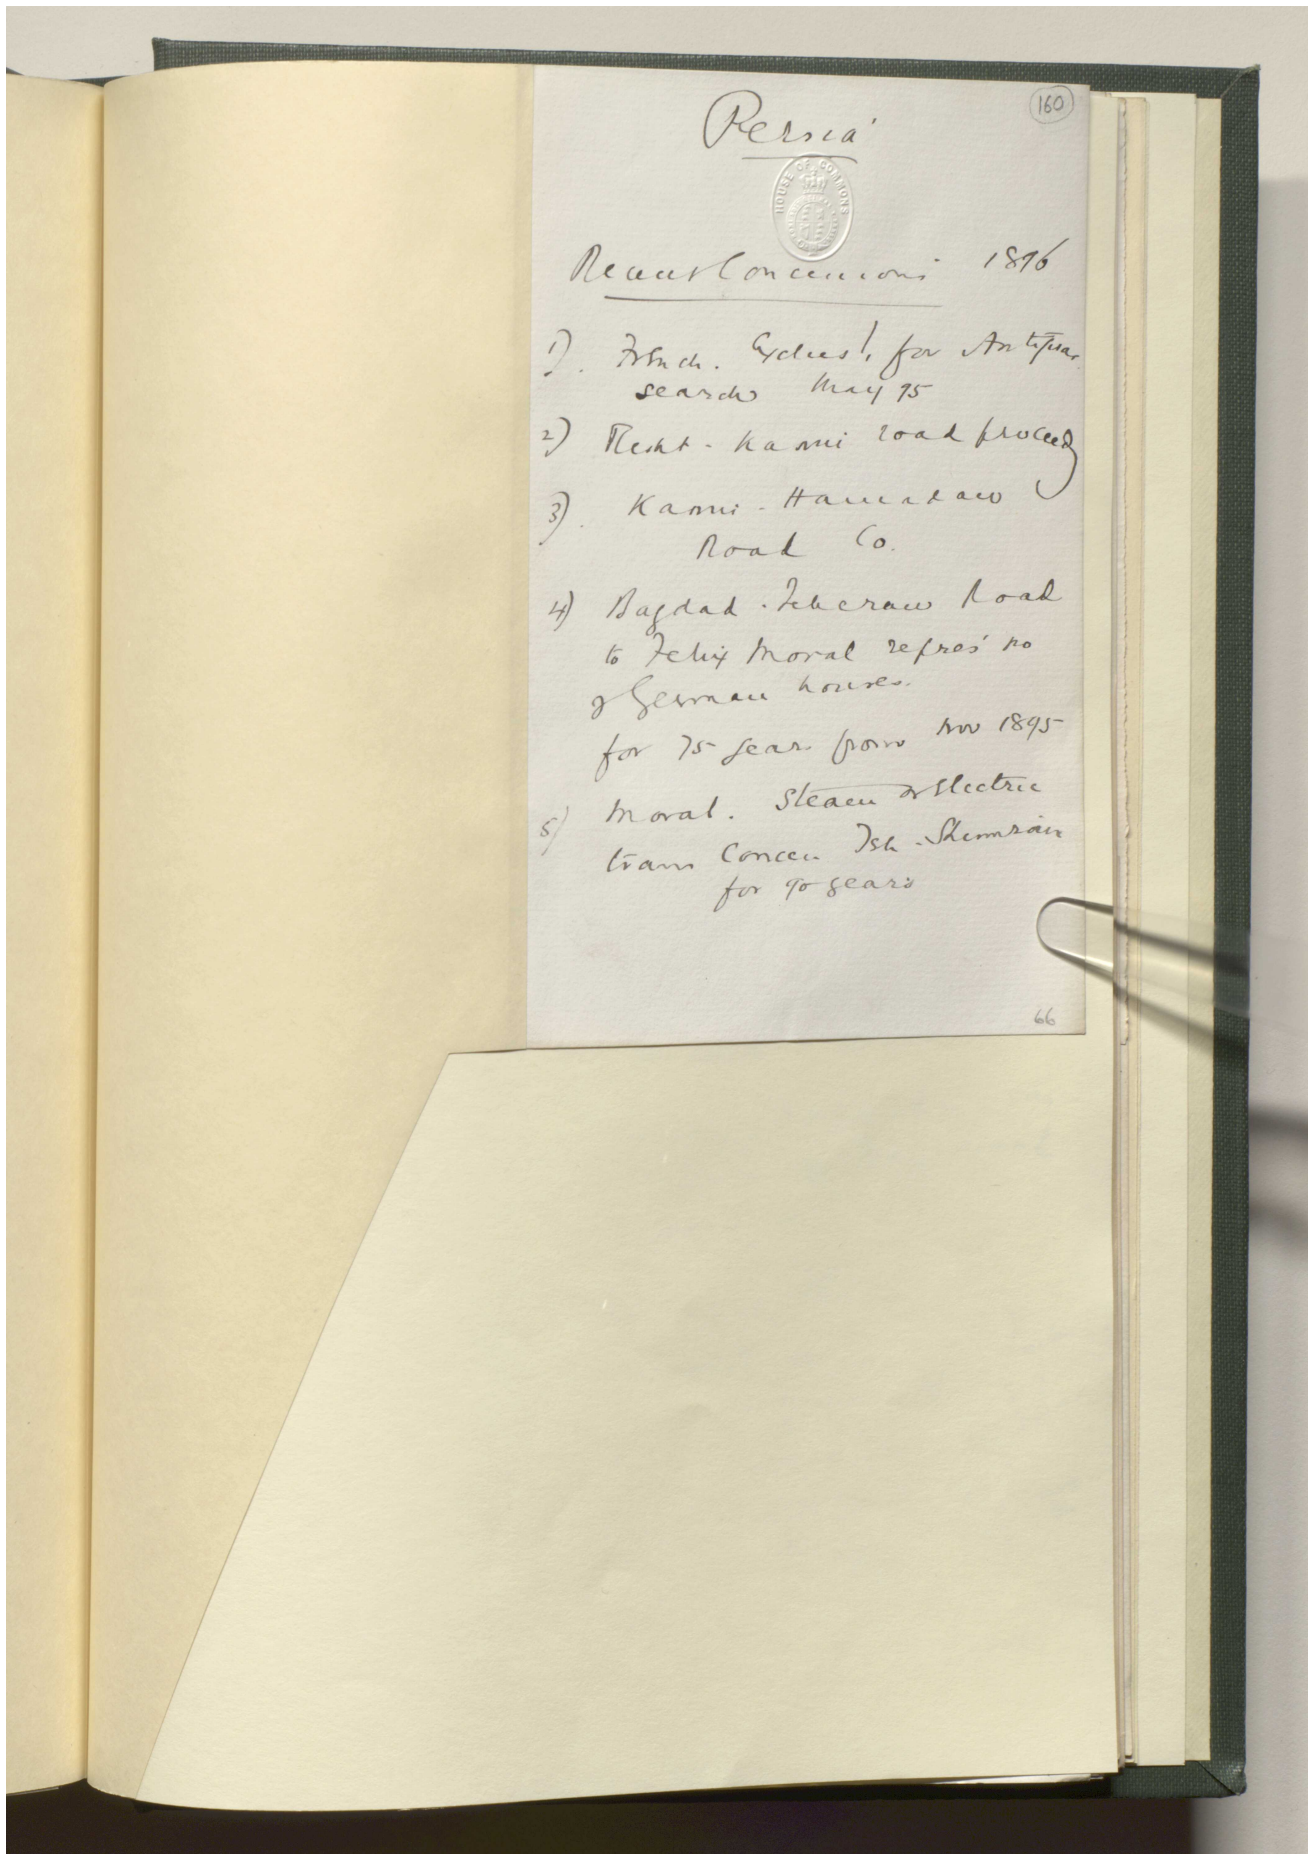 160
Persia
HOUSE OF COMMONS
Recent Concessions 1896
1). French. Exclus! for Antiqar.
search May 95
2) Resht - Kasvin road proceedg
3). Kasvin - Hamadan
Road Co.
4) Bagdad - Teheran Road
to Felix Moral
German houses.
for 75 years from Nov 1895
5) Moral. Steam or Electric
tram Concess. Teh - Shimran
for 90 years
66